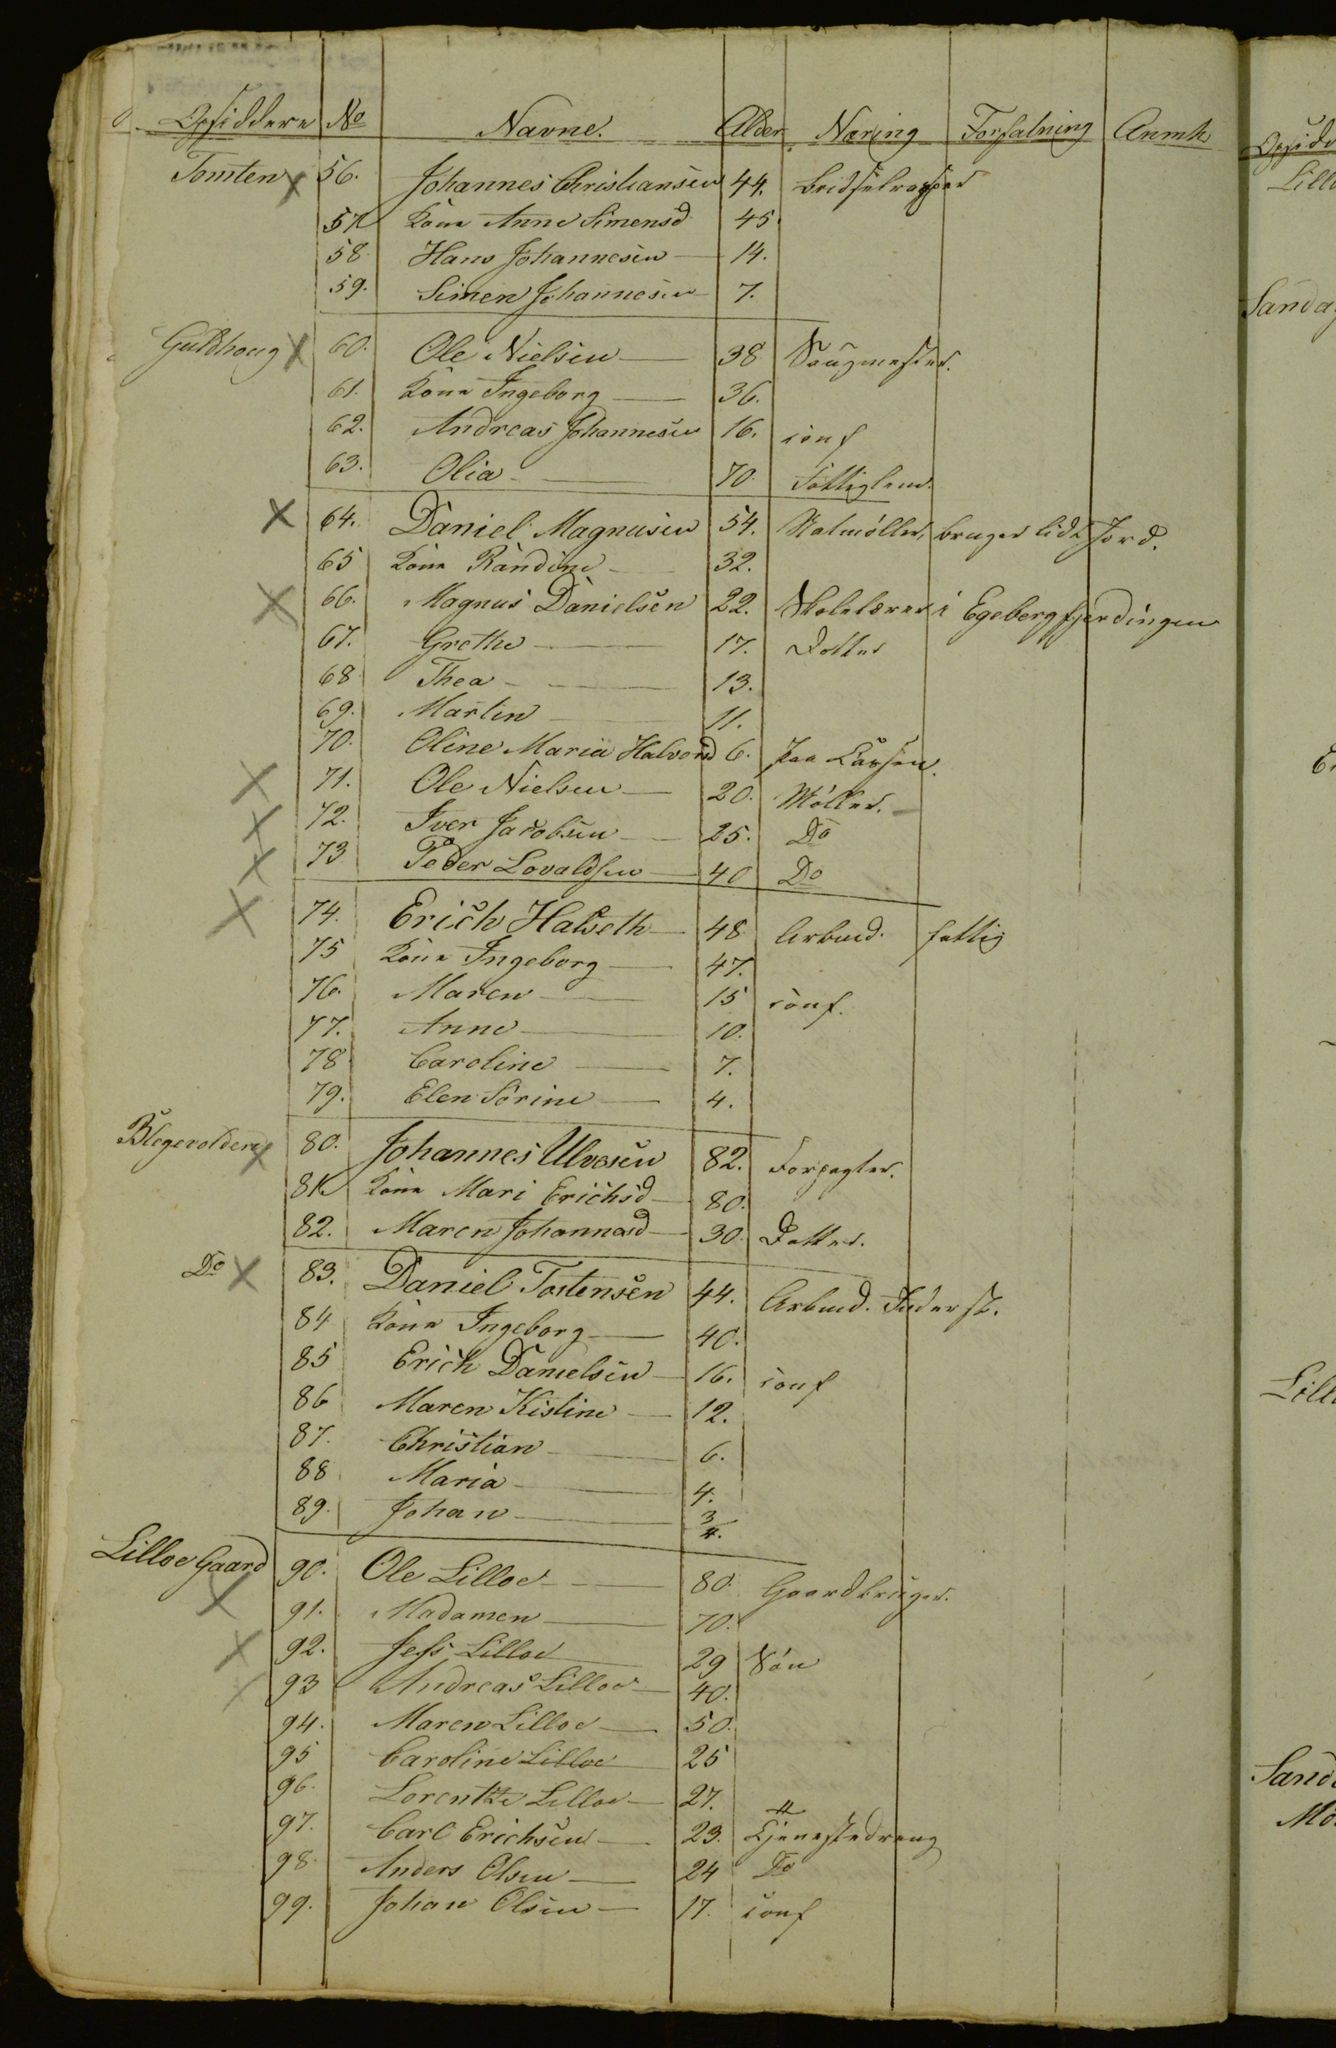 Opsiddere No Navne. Alder Næring Forfatning Anmk
Tomten 56. Johannes Christiansen 44.
57 Kone Anne Simensd 45
58 Hans Johannesen 14.
59. Simen Johannesen 7.
Guldhoug 60. Ole Nielsen 38 Saugmester.
61. Kone Ingeborg 36.
62. Andreas Johannesen 16. conf
63. Olia 70. Fattiglem.
64. Daniel Magnusen 54. bruger lidt Jord.
65 Kone Randine 32.
66. Magnus Danielsen 22. Skolelærer i Egebergfjerdingen
67. Grethe 17. Datter
68 Thea 13.
69. Martin 11.
70. Oline Maria Halvorsd 6. paa
71. Ole Nielsen 20. Møller.
72. Iver Jacobsen 25. Do
73 Peder Lovaldsen 40 Do
74. Erich Halseth 48 Arbeid. fattig
75 Kone Ingeborg 47.
76. Maren 15 conf.
77. Anne 10.
78 Caroline 7.
79. Elen Sørine 4.
Blegevolden 80. Johannes Ulvesen 82. Forpagter.
81 Kone Mari Erichsd 80.
82. Maren Johannesd 30. Datter.
Do 83. Daniel Tostensen 44. Arbeid. Inderst.
84 Kone Ingeborg 40.
85 Erich Danielsen 16. conf
86 Maren Kistine 12.
87. Christian 6.
88 Maria 4.
89. Johan 3/4.
Lilloe Gaard 90. Ole Lilloe 80. Gaardbruger.
91. Madamen 70.
92. Jess Lilloe 29 Søn
93 Andreas Lilloe 40.
94. Maren Lilloe 50.
95 Caroline Lilloe 25
96. Lorentze Lilloe 27.
97. Carl Erichsen 23. Tjenestedreng
98 Anders Olsen 24 Do
99. Johan Olsen 17. conf